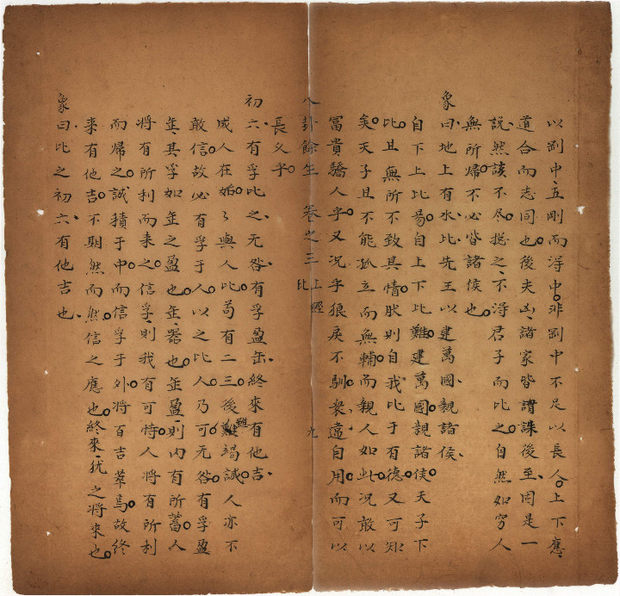 以剛中立剛而得中非剛中不足以長人上下應
道合而志同也後夫凶諸家皆謂誅後至固是一
說然該不尽揔之不得君子而比之自然如穷人
無所㱕不必皆諸侯也
象曰地上有水比先王以建萬國親諸侯
自下上比易自上下比難建萬國親諸侯天子下
比也且無所不致其情狀則自我比于有德又可知
矣天子且不能孤立而無輔而親人如此况敢以
富貴驕人乎又况乎狠戾不馴衆違自用而可以
八卦餘生 卷之三 上經 比 九
長久乎
初六有孚比之无咎有孚盈缶終來有他吉
咸人在始与人比苟有二三後雖竭誠人亦不
敢信故必有孚于人以之比人乃可无咎有孚盈
缶其孚如缶之盈也缶器也缶盈則内有所蓄人
將有所利而来之信孚則我有可恃人將有所利
而㱕之誠積于中而信孚于外將百吉萃焉故終
来有他吉不期然而然信之應也終來犹之將来也
象曰比之初六有他吉也